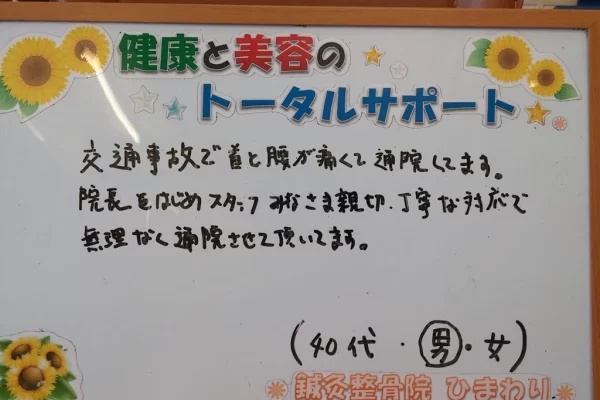 健康と美容の
トータルサポート
交通事故で首と腰が痛くて通院してます。
院長をはじめスタッフみなさま親切、丁寧な対応で
無理なく通院させて頂いてます。
(40代・男・女)
鍼灸整骨院 ひまわり